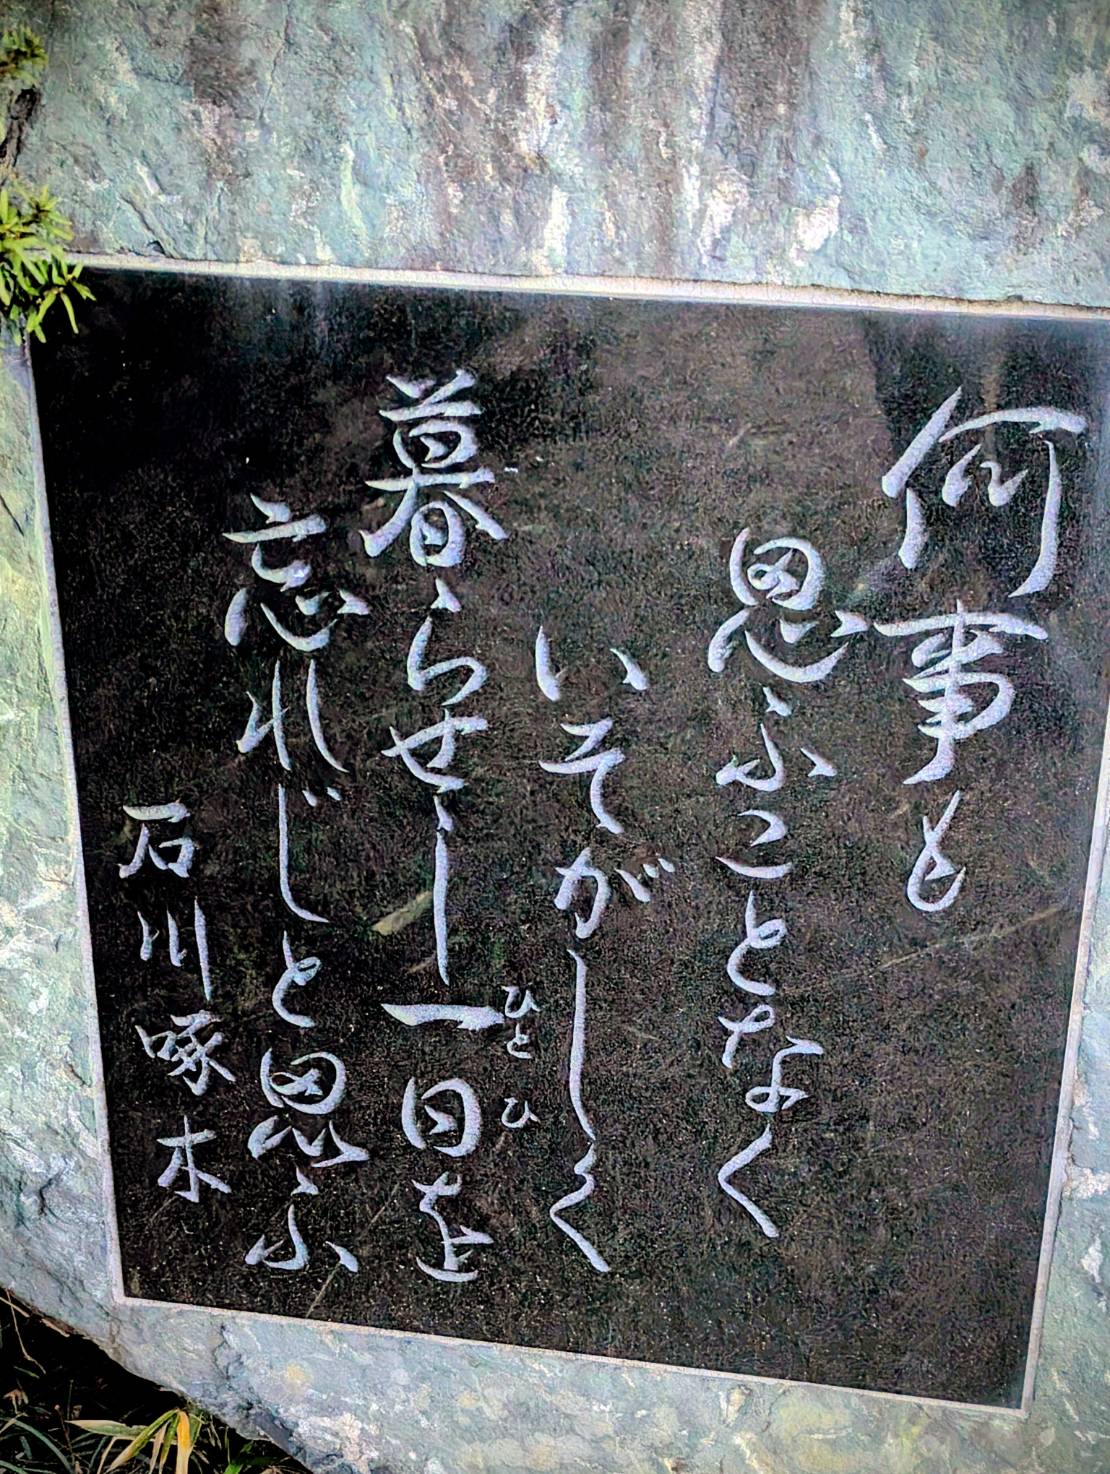 何事も
思ふことなく
いそがしく
暮らせし一日を
ひとひ
忘れじと思ふ
石川啄木